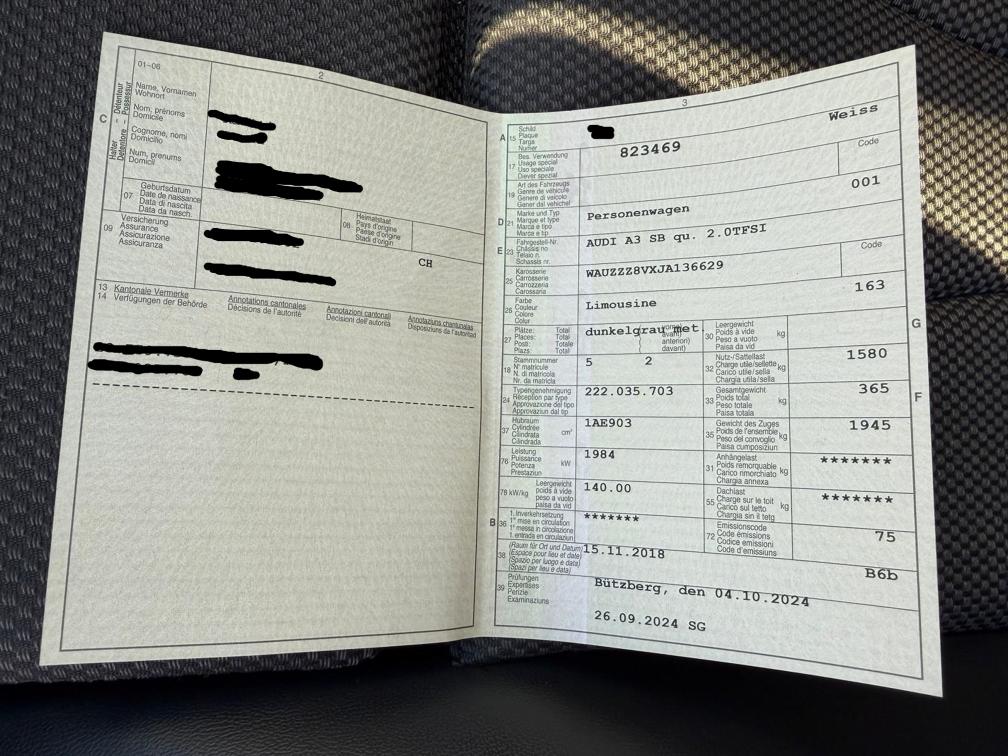 2
01-06
C
Halter Détenteur
Detentore Possessur
Name, Vornamen
Wohnort
Nom, prénoms
Domicile
Cognome, nomi
Domicilio
Num, prenums
Domicil
07
Geburtsdatum
Date de naissance
Data di nascita
Data da nasch.
08
Heimatstaat
Pays d'origine
Paese d'origine
Stadi d'origin
CH
09
Versicherung
Assurance
Assicurazione
Assicuranza
13 Kantonale Vermerke
14 Verfügungen der Behörde
Annotations cantonales
Décisions de l'autorité
Annotazioni cantonali
Decisioni dell'autorità
Annotaziuns chantunalas
Disposiziuns da l'autoritad
3
A 15
Schild
Plaque
Targa
Numer
823469
Weiss
17
Bes. Verwendung
Usage spécial
Uso speciale
Diever spezial
Code
19
Art des Fahrzeugs
Genre de véhicule
Genere di veicolo
Gener dal vehichel
Personenwagen
001
D 21
Marke und Typ
Marque et type
Marca e tipo
Marca e tip
AUDI A3 SB qu. 2.0TFSI
E 23
Fahrgestell-Nr.
Châssis no
Telaio n.
Schassis nr.
WAUZZZ8VXJA136629
Code
25
Karosserie
Carrosserie
Carrozzeria
Carossaria
Limousine
163
26
Farbe
Couleur
Colore
Colur
dunkelgrau met.
27
Plätze: Total
Places: Total
Posti: Totale
Plazs: Total
avant)
anteriori)
davant)
5 2
G
30
Leergewicht
Poids à vide
Peso a vuoto
Paisa da vid
kg
1580
18
Stammnummer
N° matricule
N. di matricola
Nr. da matricla
222.035.703
32
Nutz-/Sattellast
Charge utile/sellette
Carico utile/sella
Chargia utila/sella
kg
365
24
Typengenehmigung
Réception par type
Approvazione del tipo
Approvaziun dal tip
1AE903
F
33
Gesamtgewicht
Poids total
Peso totale
Paisa totala
kg
1945
37
Hubraum
Cylindrée
Cilindrata
Cilindrada
cm³
1984
35
Gewicht des Zuges
Poids de l'ensemble
Peso del convoglio
Paisa cumposiziun
kg
*******
76
Leistung
Puissance
Potenza
Prestaziun
kW
140.00
31
Anhängelast
Poids remorquable
Carico rimorchiato
Chargia annexa
kg
*******
78 kW/kg
Leergewicht
poids à vide
peso a vuoto
paisa da vid
*******
55
Dachlast
Charge sur le toit
Carico sul tetto
Chargia sin il tetg
kg
75
B 36
1. Inverkehrsetzung
1re mise en circulation
1a messa in circolazione
1. entrada en circulaziun
15.11.2018
72
Emissionscode
Code émissions
Codice emissioni
Code d'emissiuns
B6b
38
(Raum für Ort und Datum)
(Espace pour lieu et date)
(Spazio per luogo e data)
(Spazi per lieu e data)
Bützberg, den 04.10.2024
39
Prüfungen
Expertises
Perizie
Examinaziuns
26.09.2024 SG